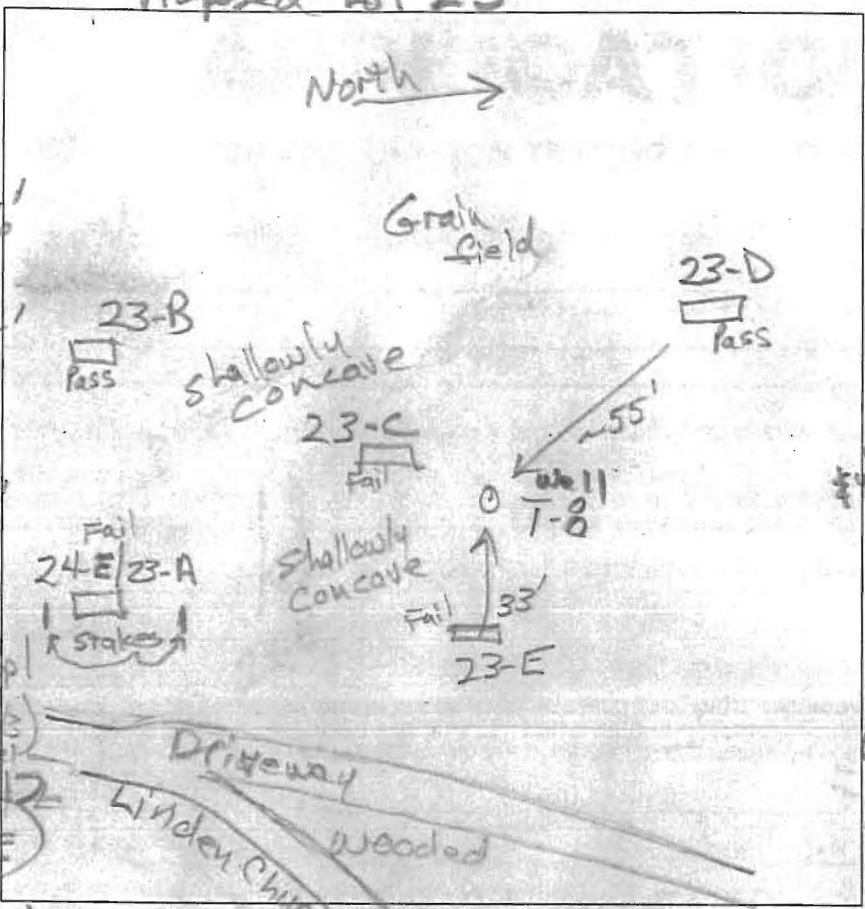 Lot 23
North
Grain
field
23-D
Pass
23-B
Pass
shallowly
concave
~55'
23-C
Fail
Well
Fail
24-E/23-A
Stakes
shallowly
concave
Fail
33'
23-E
Driveway
Linden
Wooded